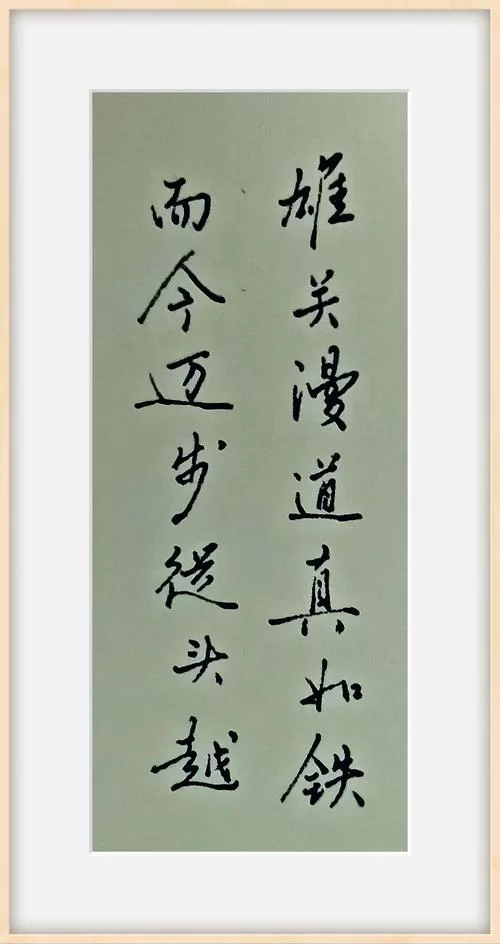 雄关漫道真如鉄
而今迈步從头越